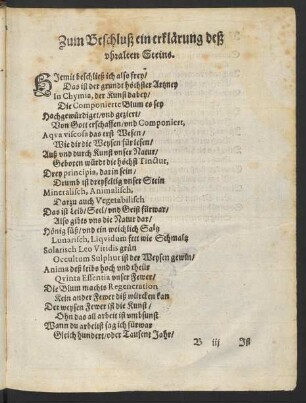 Zum Beschluß ein erklärung deß
vhralten Steins.
HIemit beschließ ich also frey/
Das ist der grundt höchster Artzney
In Chymia, der Kunst dabey/
Die Componierte Blum es sey
Hochgewürdiget/vnd geziert/
Von Gott erschaffen/vnd Componiert,
Aqva viscosa das erst Wesen/
Wie dir die Weysen fürlesen/
Auß vnd durch Kunst vnser Natur/
Geboren würdt die höchst Tinctur,
Drey principia, darin sein/
Drumb ist dreyfeltig vnser Stein
Mineralisch, Animalisch,
Dartzu auch Vegetabilisch
Das ist Leib/Seel/vnd Geist fürwar/
Also gibts vns die Natur dar/
Hönig süß/vnd ein weichlich Saltz
Lunarisch, Liqvidum fett wie Schmaltz
Solarisch Leo Viridis grün
Occultum Sulphur ist der Weysen gewin/
Anima deß leibs hoch vnd theür
Qvinta Essentia vnser Fewer/
Die Blum machts Regeneration
Kein ander Fewer diß würcken kan
Der weysen Fewer ist die Kunst/
Ohn das all arbeit ist vmbsunst
Wann du arbeist sag ich fürwar
Gleich hundert/oder Tausent Jahr/
B iij Ist